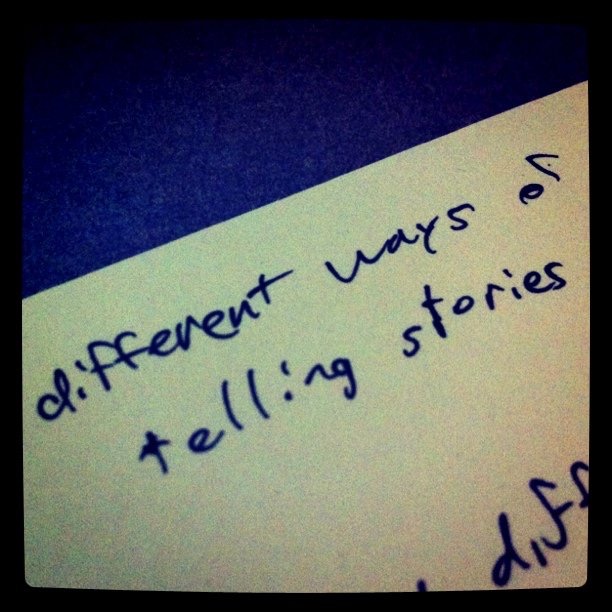 different ways of
telling stories
diff